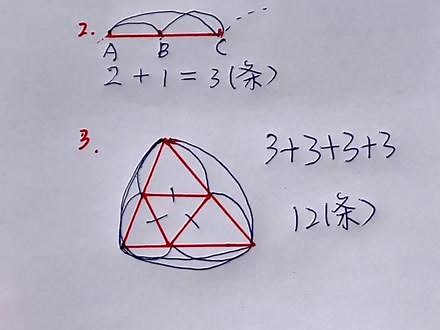 2.
A B C
2+1=3(条)
3.
3+3+3+3
12(条)